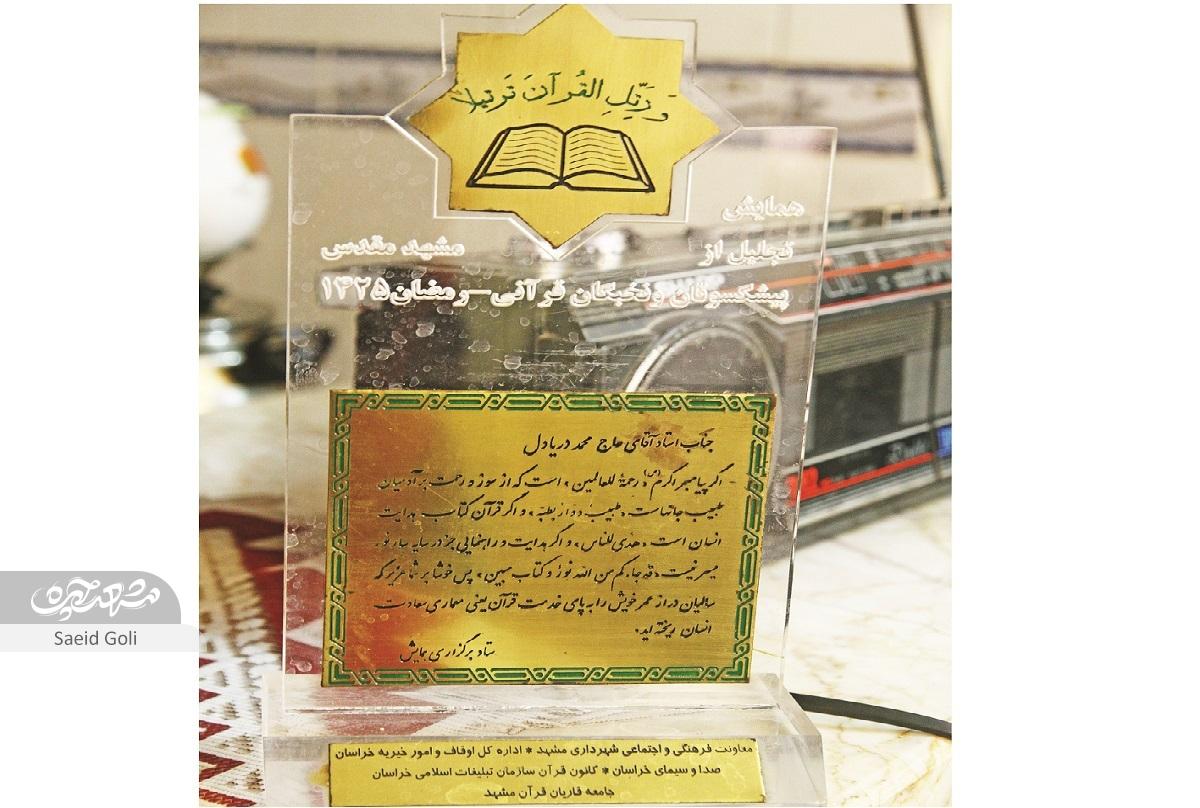 وَ رَتِّلِ القُرآنَ تَرتیلا
همایش
تجلیل از مشهد مقدس
پیشکسوتان و نخبگان قرآنی-رمضان ۱۴۲۵
جناب استاد آقای حاج محمد دریادل
- اگر پیامبر اکرم (ص) «رحمة للعالمین» است که از سوز و رحمت بر آدمیان
طبیب جانهاست «طبیب دوار بطبه» و اگر قرآن کتاب هدایت
انسان است «هدی للناس» و اگر هدایت و راهنمایی جز در سایه سار نور
میسر نیست «قد جاءکم من الله نور و کتاب مبین» پس خوشا بر شما عزیز که
سالیان دراز عمر خویش را به پای خدمت قرآن یعنی معماری سعادت
انسان ریخته اید.
ستاد برگزاری همایش
معاونت فرهنگی و اجتماعی شهرداری مشهد * اداره کل اوقاف و امور خیریه خراسان
صدا و سیمای خراسان * کانون قرآن سازمان تبلیغات اسلامی خراسان
جامعه قاریان قرآن مشهد
مشهدچهره
Saeid Goli